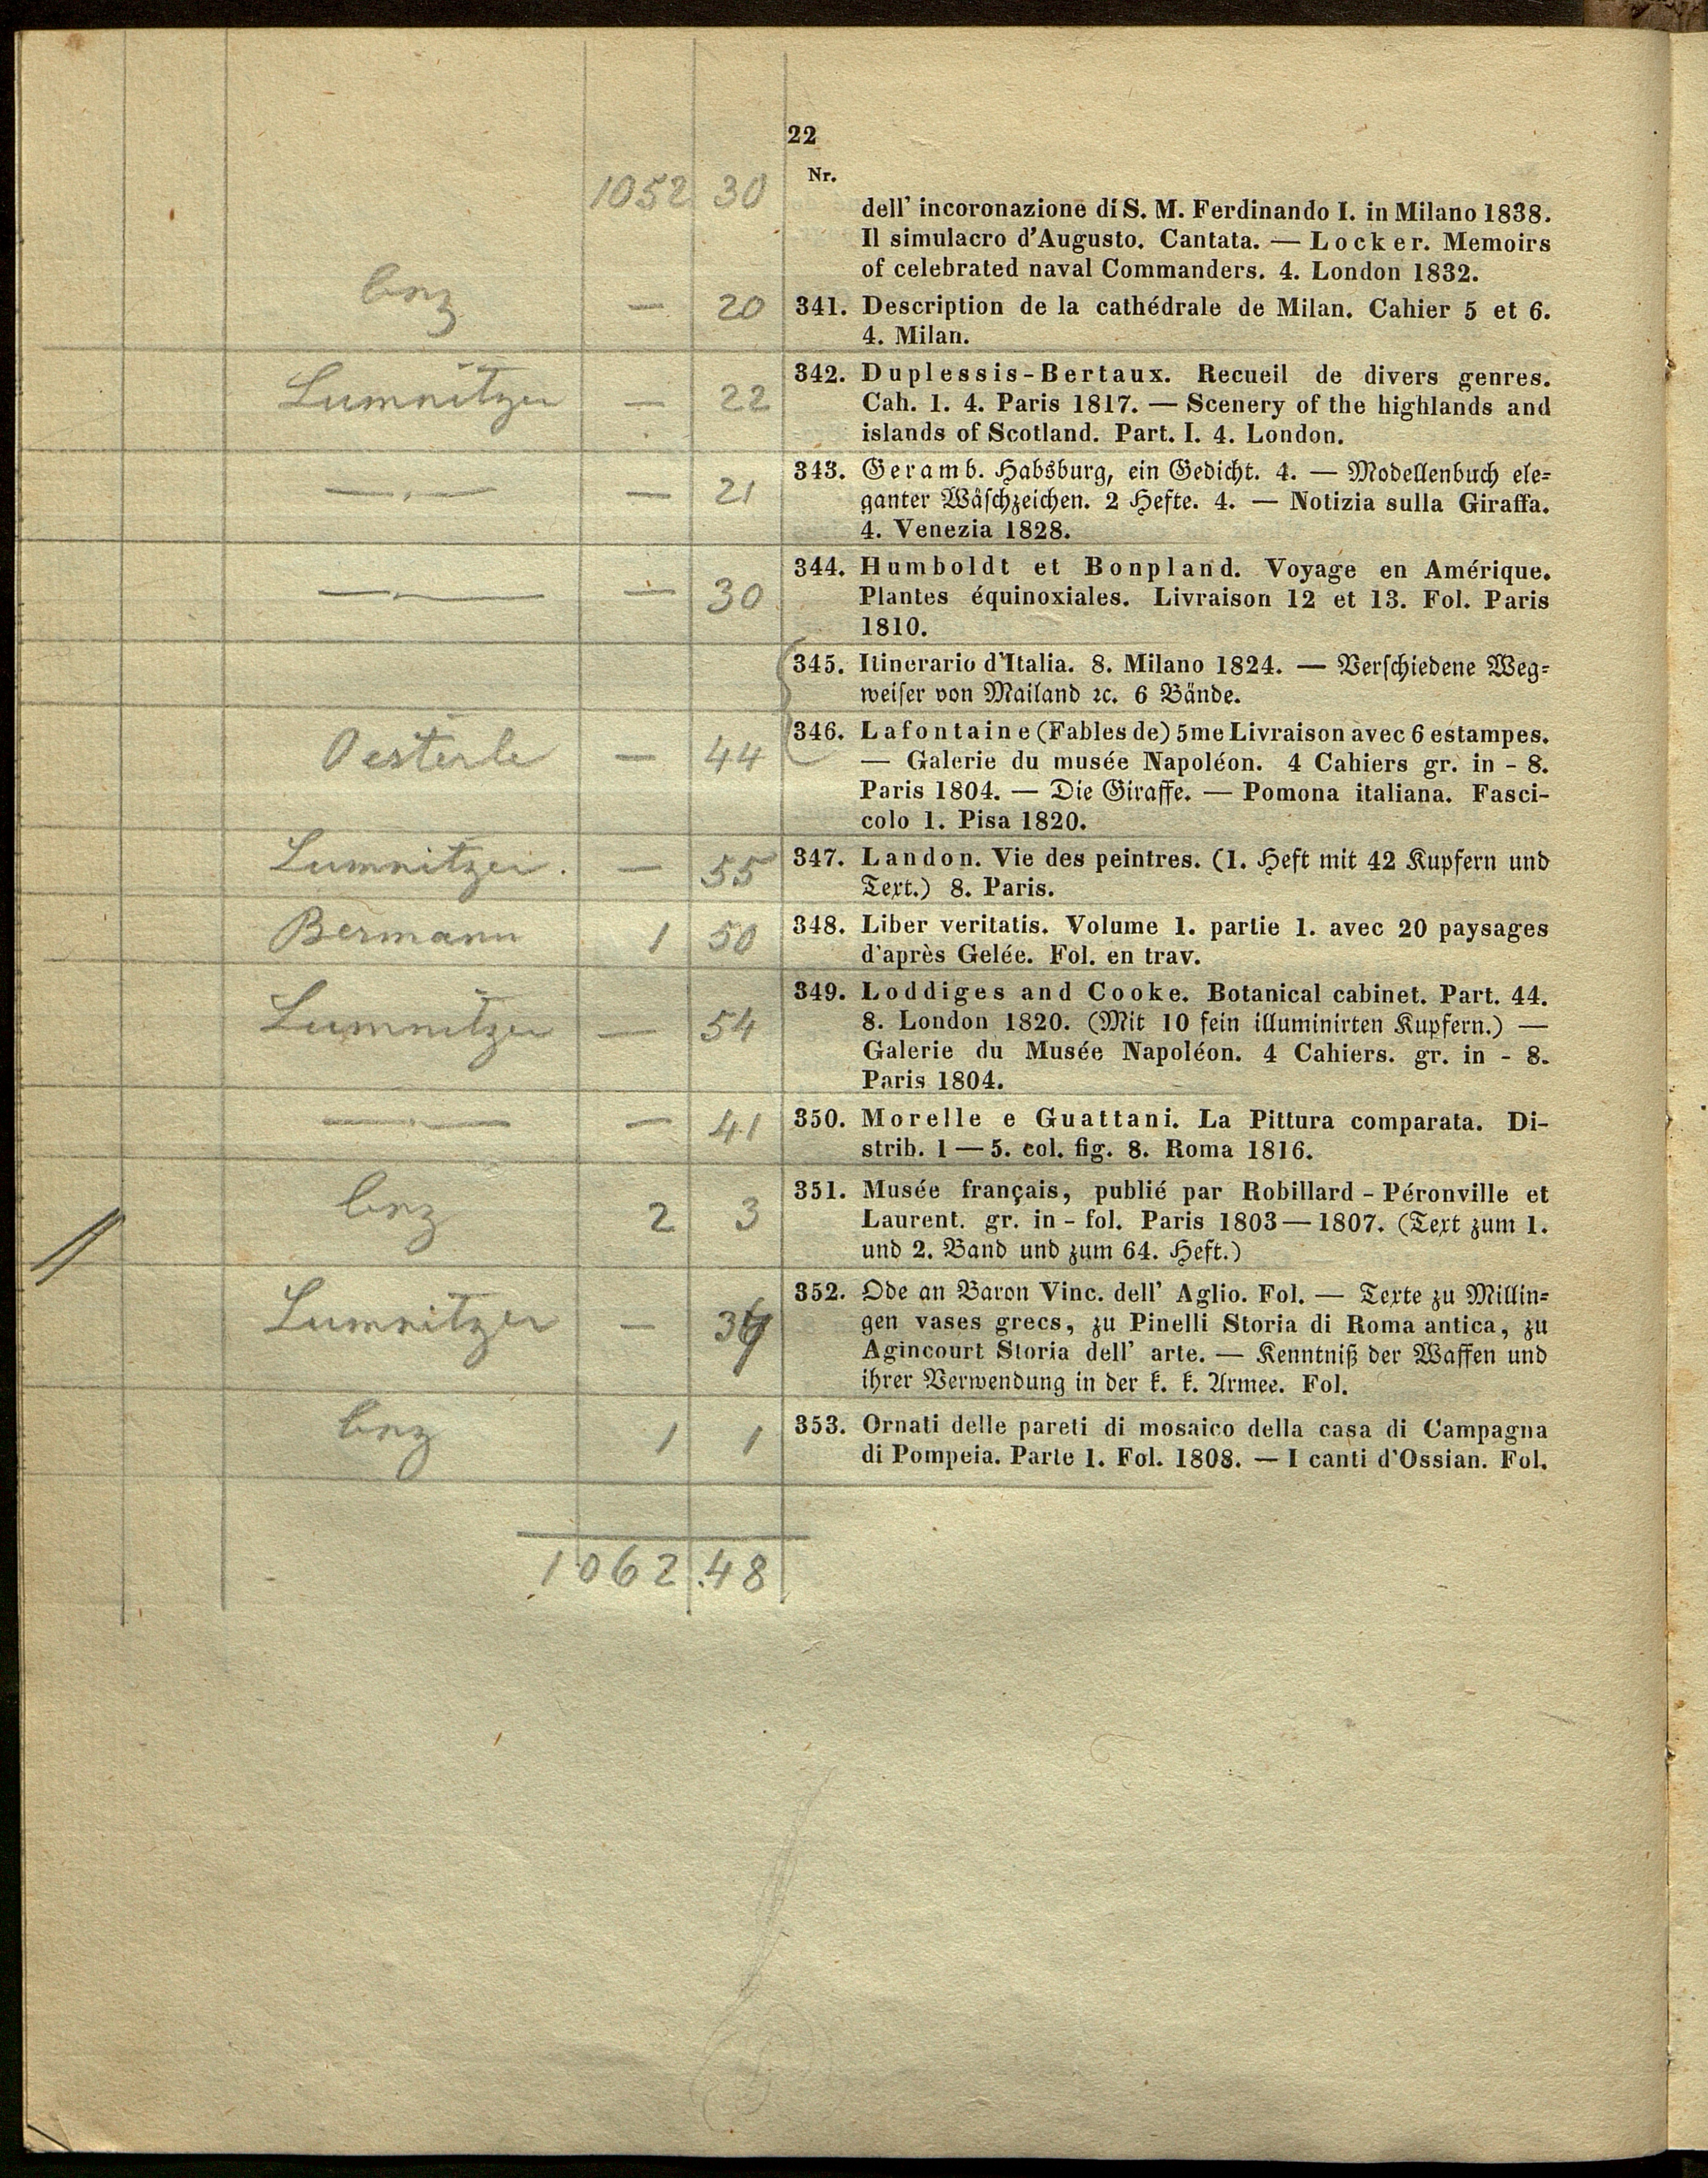 22
1052 30 Nr.
dell' incoronazione di S. M. Ferdinando I. in Milano 1838.
Il simulacro d'Augusto. Cantata. — Locker. Memoirs
of celebrated naval Commanders. 4. London 1832.
— 20 341. Description de la cathédrale de Milan. Cahier 5 et 6.
4. Milan.
Lumnitzer — 22 342. Duplessis-Bertaux. Recueil de divers genres.
Cah. 1. 4. Paris 1817. — Scenery of the highlands and
islands of Scotland. Part. I. 4. London.
— . — — 21 343. Geramb. Habsburg, ein Gedicht. 4. — Modellenbuch ele-
ganter Wäschzeichen. 2 Hefte. 4. — Notizia sulla Giraffa.
4. Venezia 1828.
— . — — 30 344. Humboldt et Bonpland. Voyage en Amérique.
Plantes équinoxiales. Livraison 12 et 13. Fol. Paris
1810.
345. Itinerario d'Italia. 8. Milano 1824. — Verschiedene Weg-
weiser von Mailand ꝛc. 6 Bände.
Oesterle — 44 346. Lafontaine (Fables de) 5me Livraison avec 6 estampes.
— Galerie du musée Napoléon. 4 Cahiers gr. in - 8.
Paris 1804. — Die Giraffe. — Pomona italiana. Fasci-
colo 1. Pisa 1820.
Lumnitzer. — 55 347. Landon. Vie des peintres. (1. Heft mit 42 Kupfern und
Text.) 8. Paris.
Bermann 1 50 348. Liber veritatis. Volume 1. partie 1. avec 20 paysages
d'après Gelée. Fol. en trav.
Lumnitzer — 54 349. Loddiges and Cooke. Botanical cabinet. Part. 44.
8. London 1820. (Mit 10 fein illuminirten Kupfern.) —
Galerie du Musée Napoléon. 4 Cahiers. gr. in - 8.
Paris 1804.
— . — — 41 350. Morelle e Guattani. La Pittura comparata. Di-
strib. 1 — 5. col. fig. 8. Roma 1816.
2 3 351. Musée français, publié par Robillard - Péronville et
Laurent. gr. in - fol. Paris 1803 — 1807. (Text zum 1.
und 2. Band und zum 64. Heft.)
Lumnitzer — 352. Ode an Baron Vinc. dell' Aglio. Fol. — Texte zu Millin-
gen vases grecs, zu Pinelli Storia di Roma antica, zu
Agincourt Storia dell' arte. — Kenntniß der Waffen und
ihrer Verwendung in der k. k. Armee. Fol.
1 1 353. Ornati delle pareti di mosaico della casa di Campagna
di Pompeia. Parte 1. Fol. 1808. — I canti d'Ossian. Fol.
1062.48